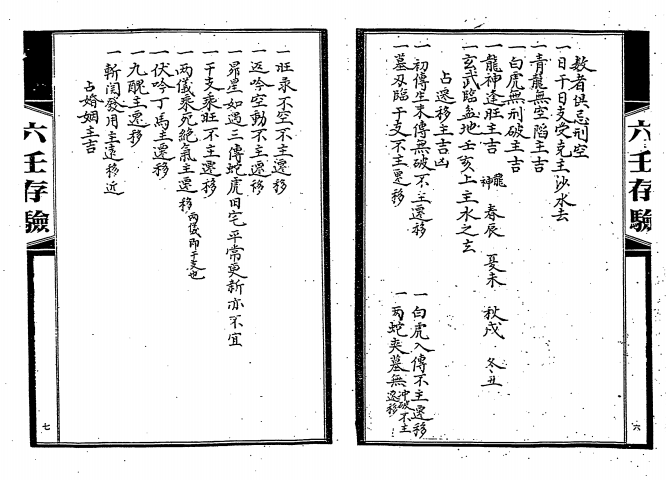 六壬存驗
六
數者俱忌刑空
一日干日支受克主沙水去
一青龍無空陷主吉
一白虎無刑破主吉
一龍神逢旺主吉 龍神 春辰 夏未 秋戌 冬丑
一玄武臨盆地壬亥上主水之玄
占遷移主吉凶
一初傳生末傳無破不主遷移
一白虎入傳不主遷移
一墓刃臨干支不主遷移
一兩蛇夾墓無冲破不主遷移
一旺汞不空不主遷移
一返吟空動不主遷移
一昴星如遇三傳蛇虎旧宅平常更新亦不宜
一干支乘旺不主遷移
一兩儀乘死絕氣主遷移 兩儀即干支也
一伏吟丁馬主遷移
一九醜主遷移
一斬関發用主遷移近
占婚姻主吉
六壬存驗
七